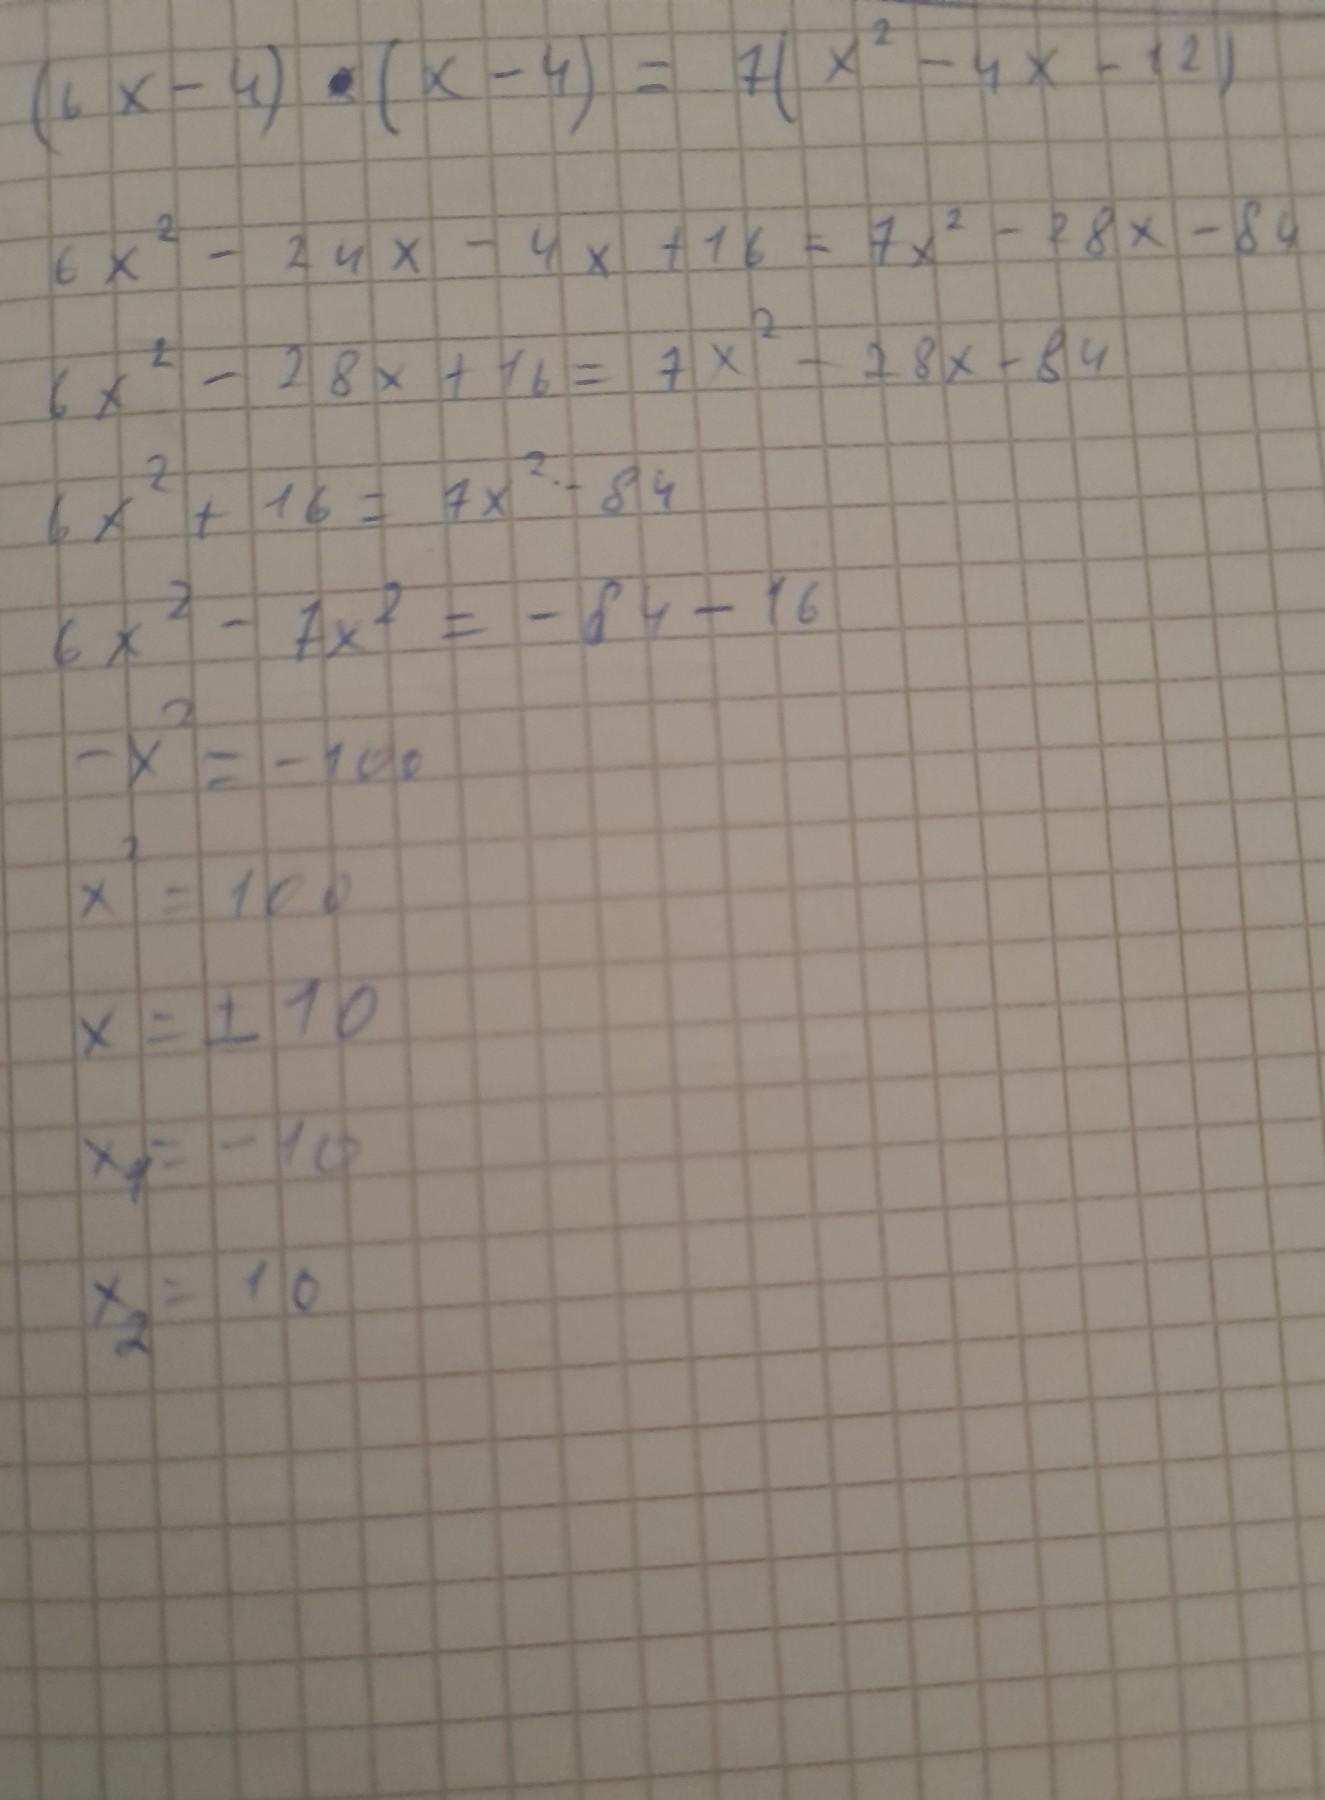 (6x-4)•(x-4) = 7(x²-4x-12)
6x² - 24x - 4x + 16 = 7x² - 28x - 84
6x² - 28x + 16 = 7x² - 28x - 84
6x² + 16 = 7x² - 84
6x² - 7x² = - 84 - 16
-x² = -100
x² = 100
x = ± 10
x₁ = - 10
x₂ = 10